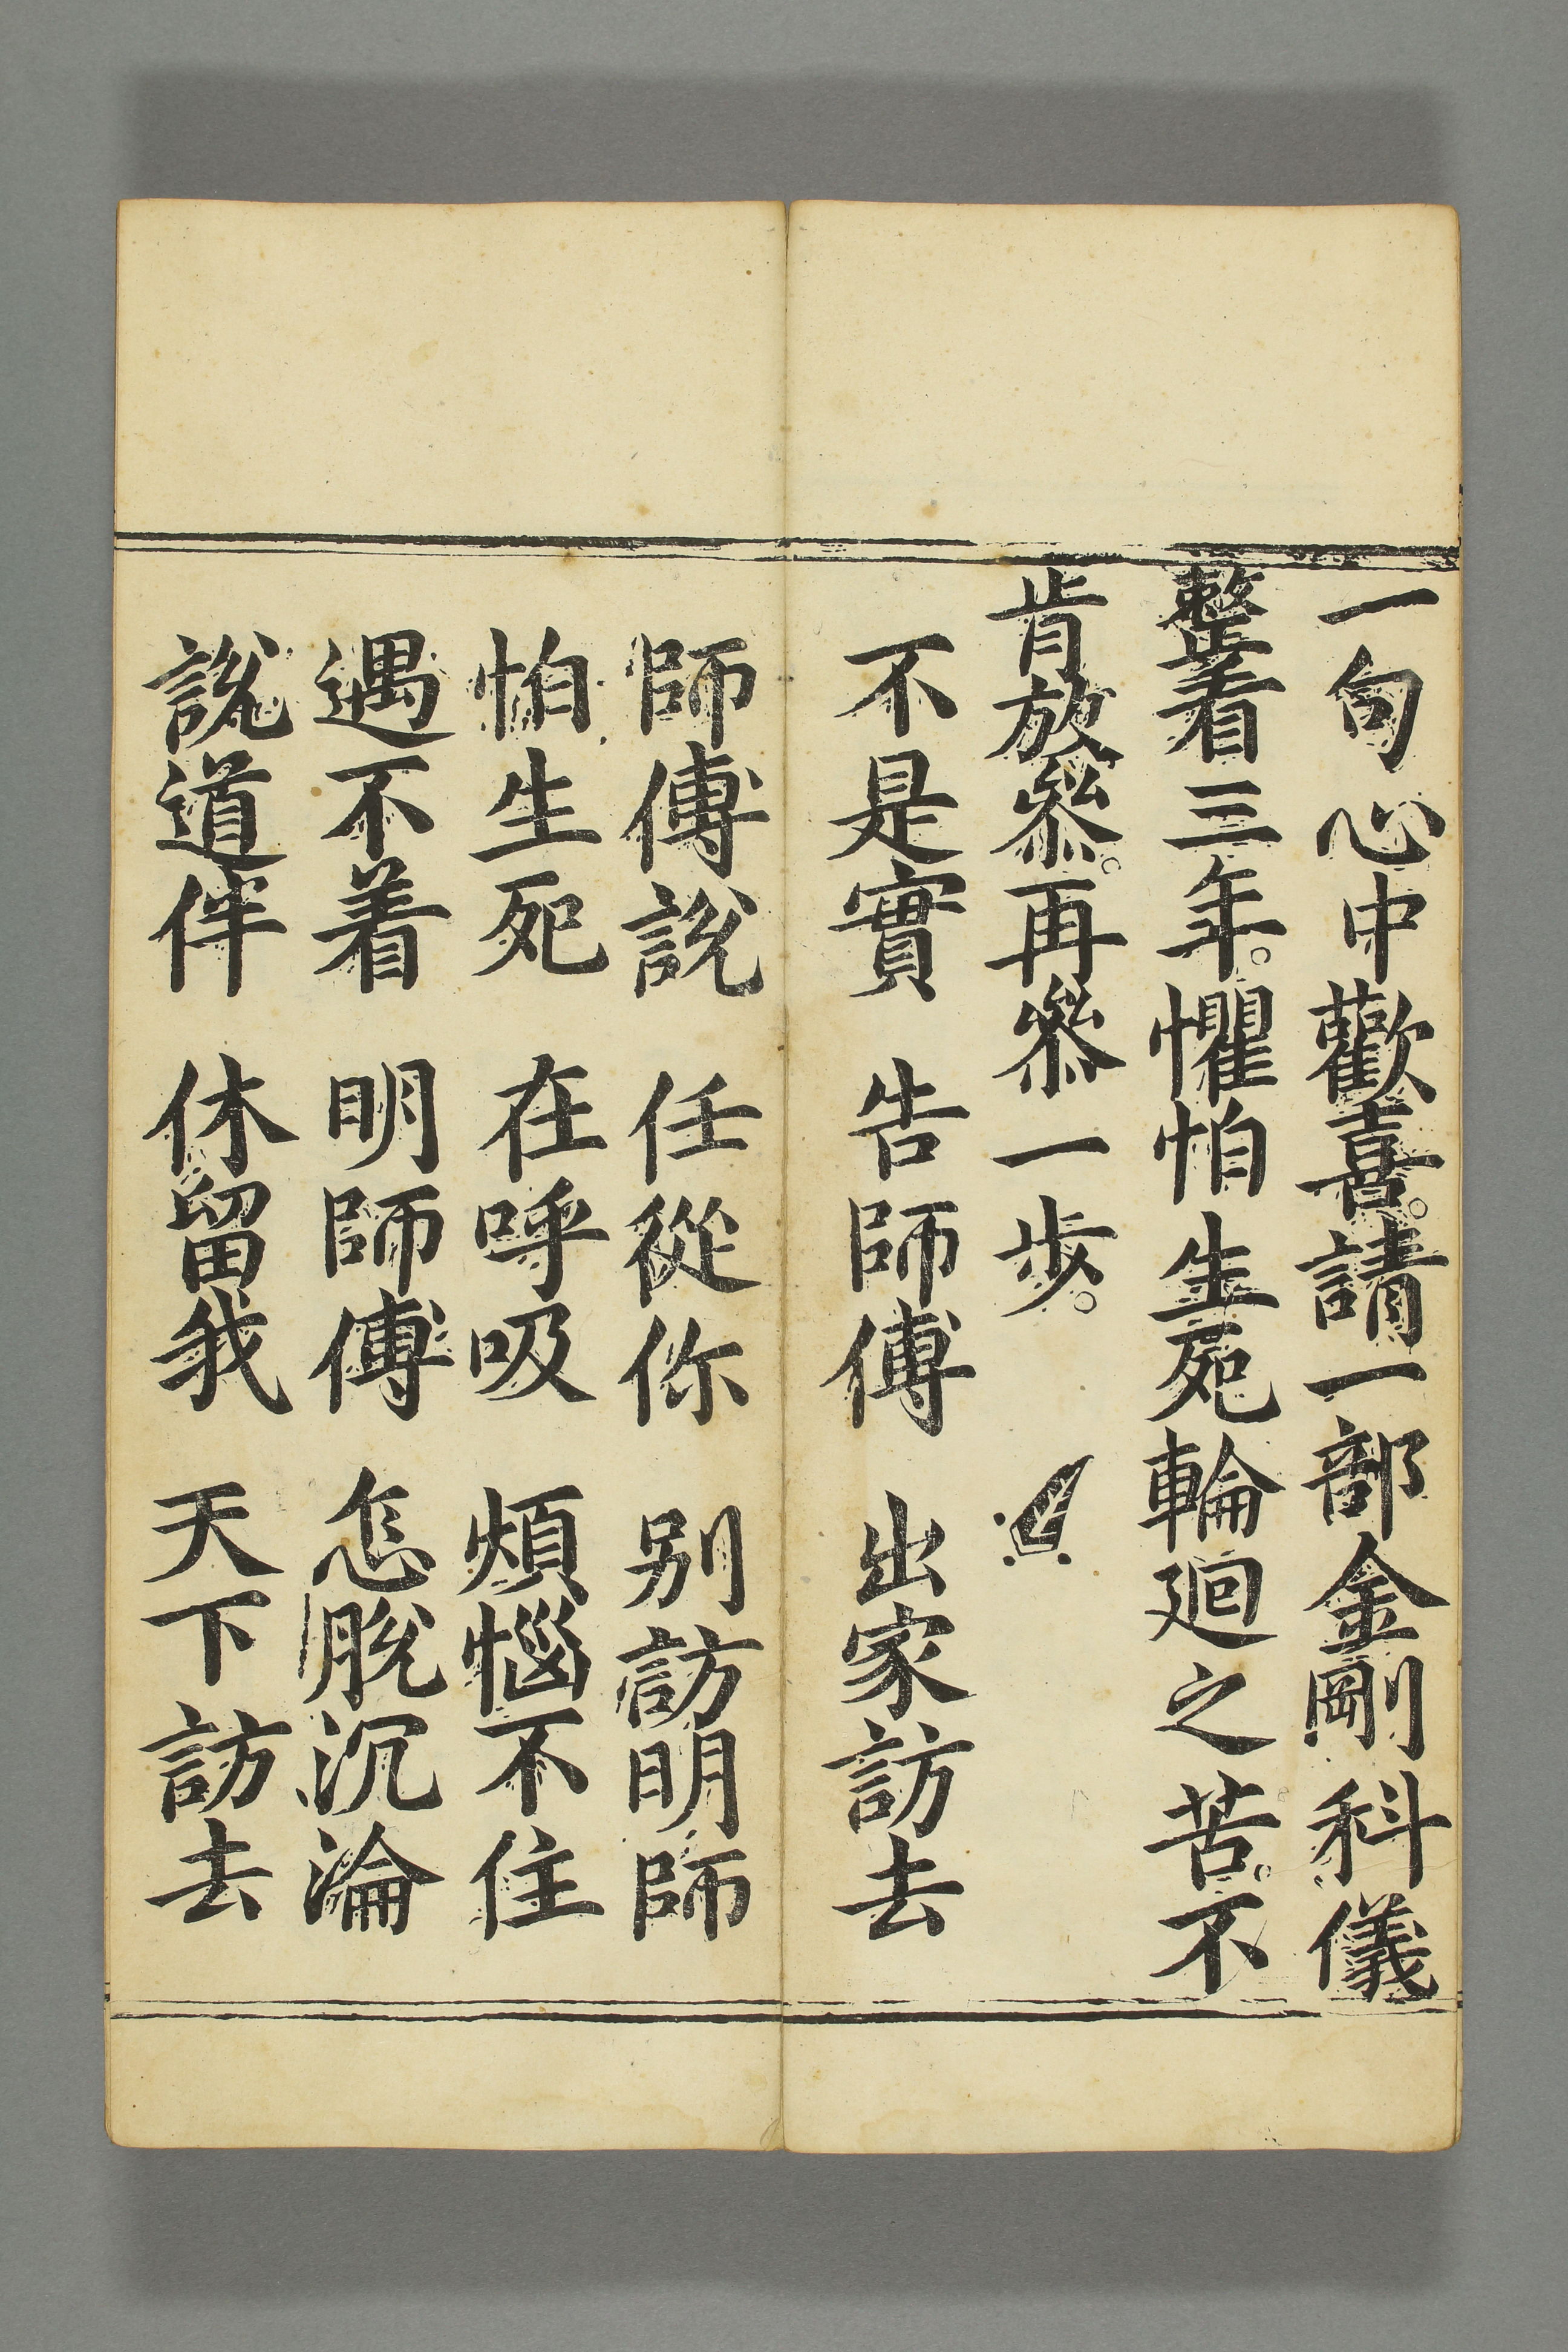 一句心中歡喜。請一部金剛科儀
整看三年。懼怕生死輪廻之苦。不
肯放叅。再叅一步。
不是實　告師傅　出家訪去
師傅說　任從你　別訪明師
怕生死　在呼吸　煩惱不住
遇不着　明師傅　怎脫沉淪
說道伴　休留我　天下訪去